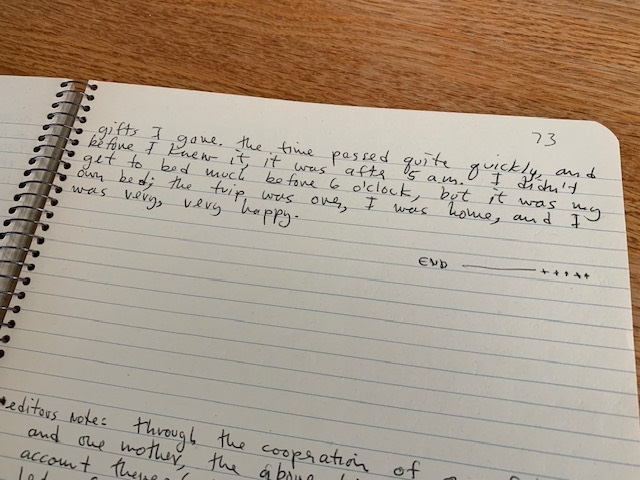 73
gifts I gave. the time passed quite quickly, and
before I knew it, it was after 5 am. I didn't
get to bed much before 6 o'clock, but it was my
own bed; the trip was over, I was home, and I
was very, very happy.
END
editors note: through the cooperation of
and one mother, the above
account